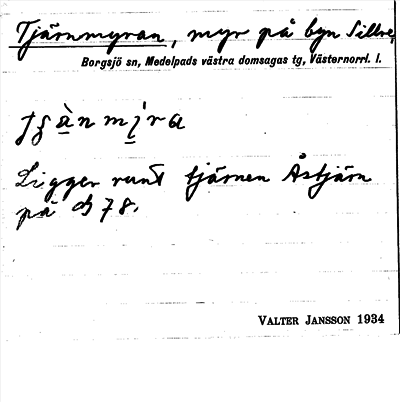 Tjärnmyran, myr på byn Sillre,
Borgsjö sn, Medelpads västra domsagas tg, Västernorrl. l.
Ligger runt tjärnen Åstjärn
på 78.
VALTER JANSSON 1934